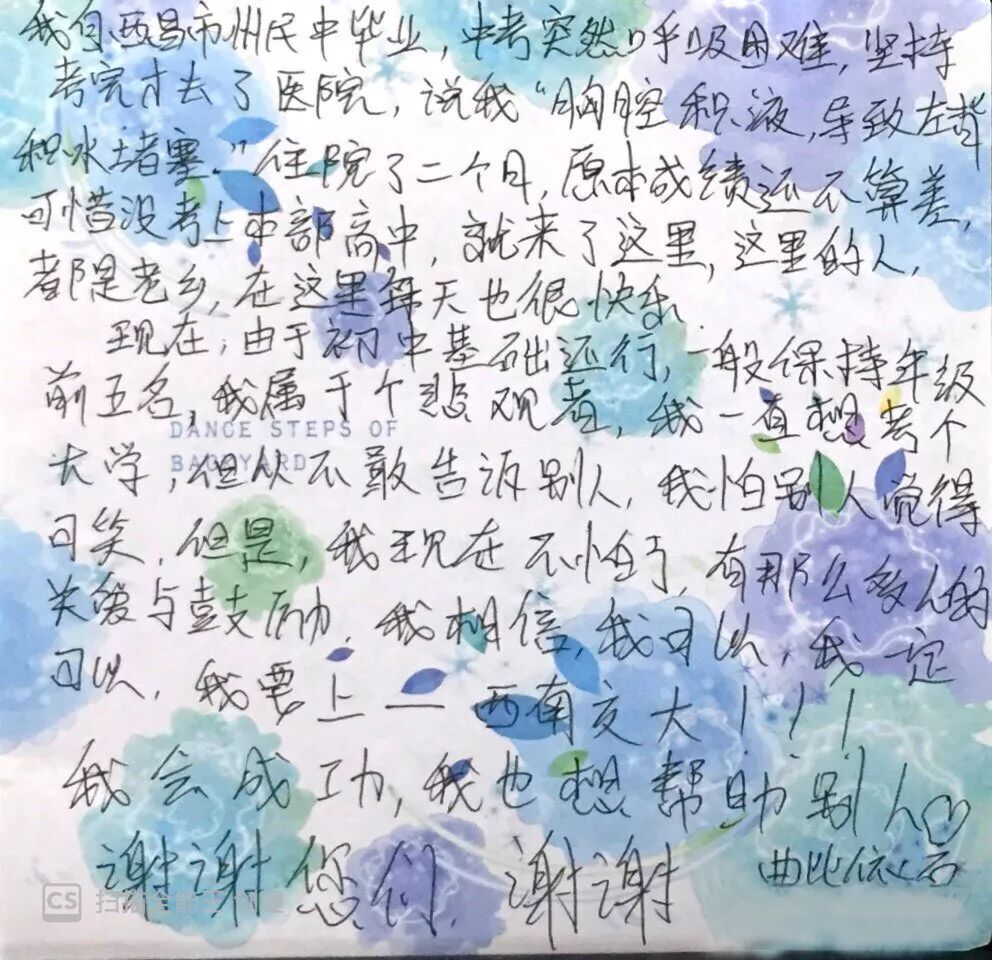 我自西昌市州民中毕业，中考突然呼吸困难，坚持
考完才去了医院，说我“胸腔积液，导致左肾
积水堵塞。”住院了二个月，原本成绩还不算差，
可惜没考上本部高中，就来了这里，这里的人，
都是老乡，在这里每天也很快乐
现在，由于初中基础还行，一般保持年级
前五名，我属于个悲观者，我一直想考个
DANCE STEPS OF
大学，但从不敢告诉别人，我怕别人觉得
BACKYARD
可笑，但是，我现在不怕了，有那么多人的
关爱与鼓励，我相信，我可以，我一定
可以，我要上——西南交大！！！
我会成功，我也想帮助别人
谢谢您们，谢谢
曲比依
CS 扫描全能王